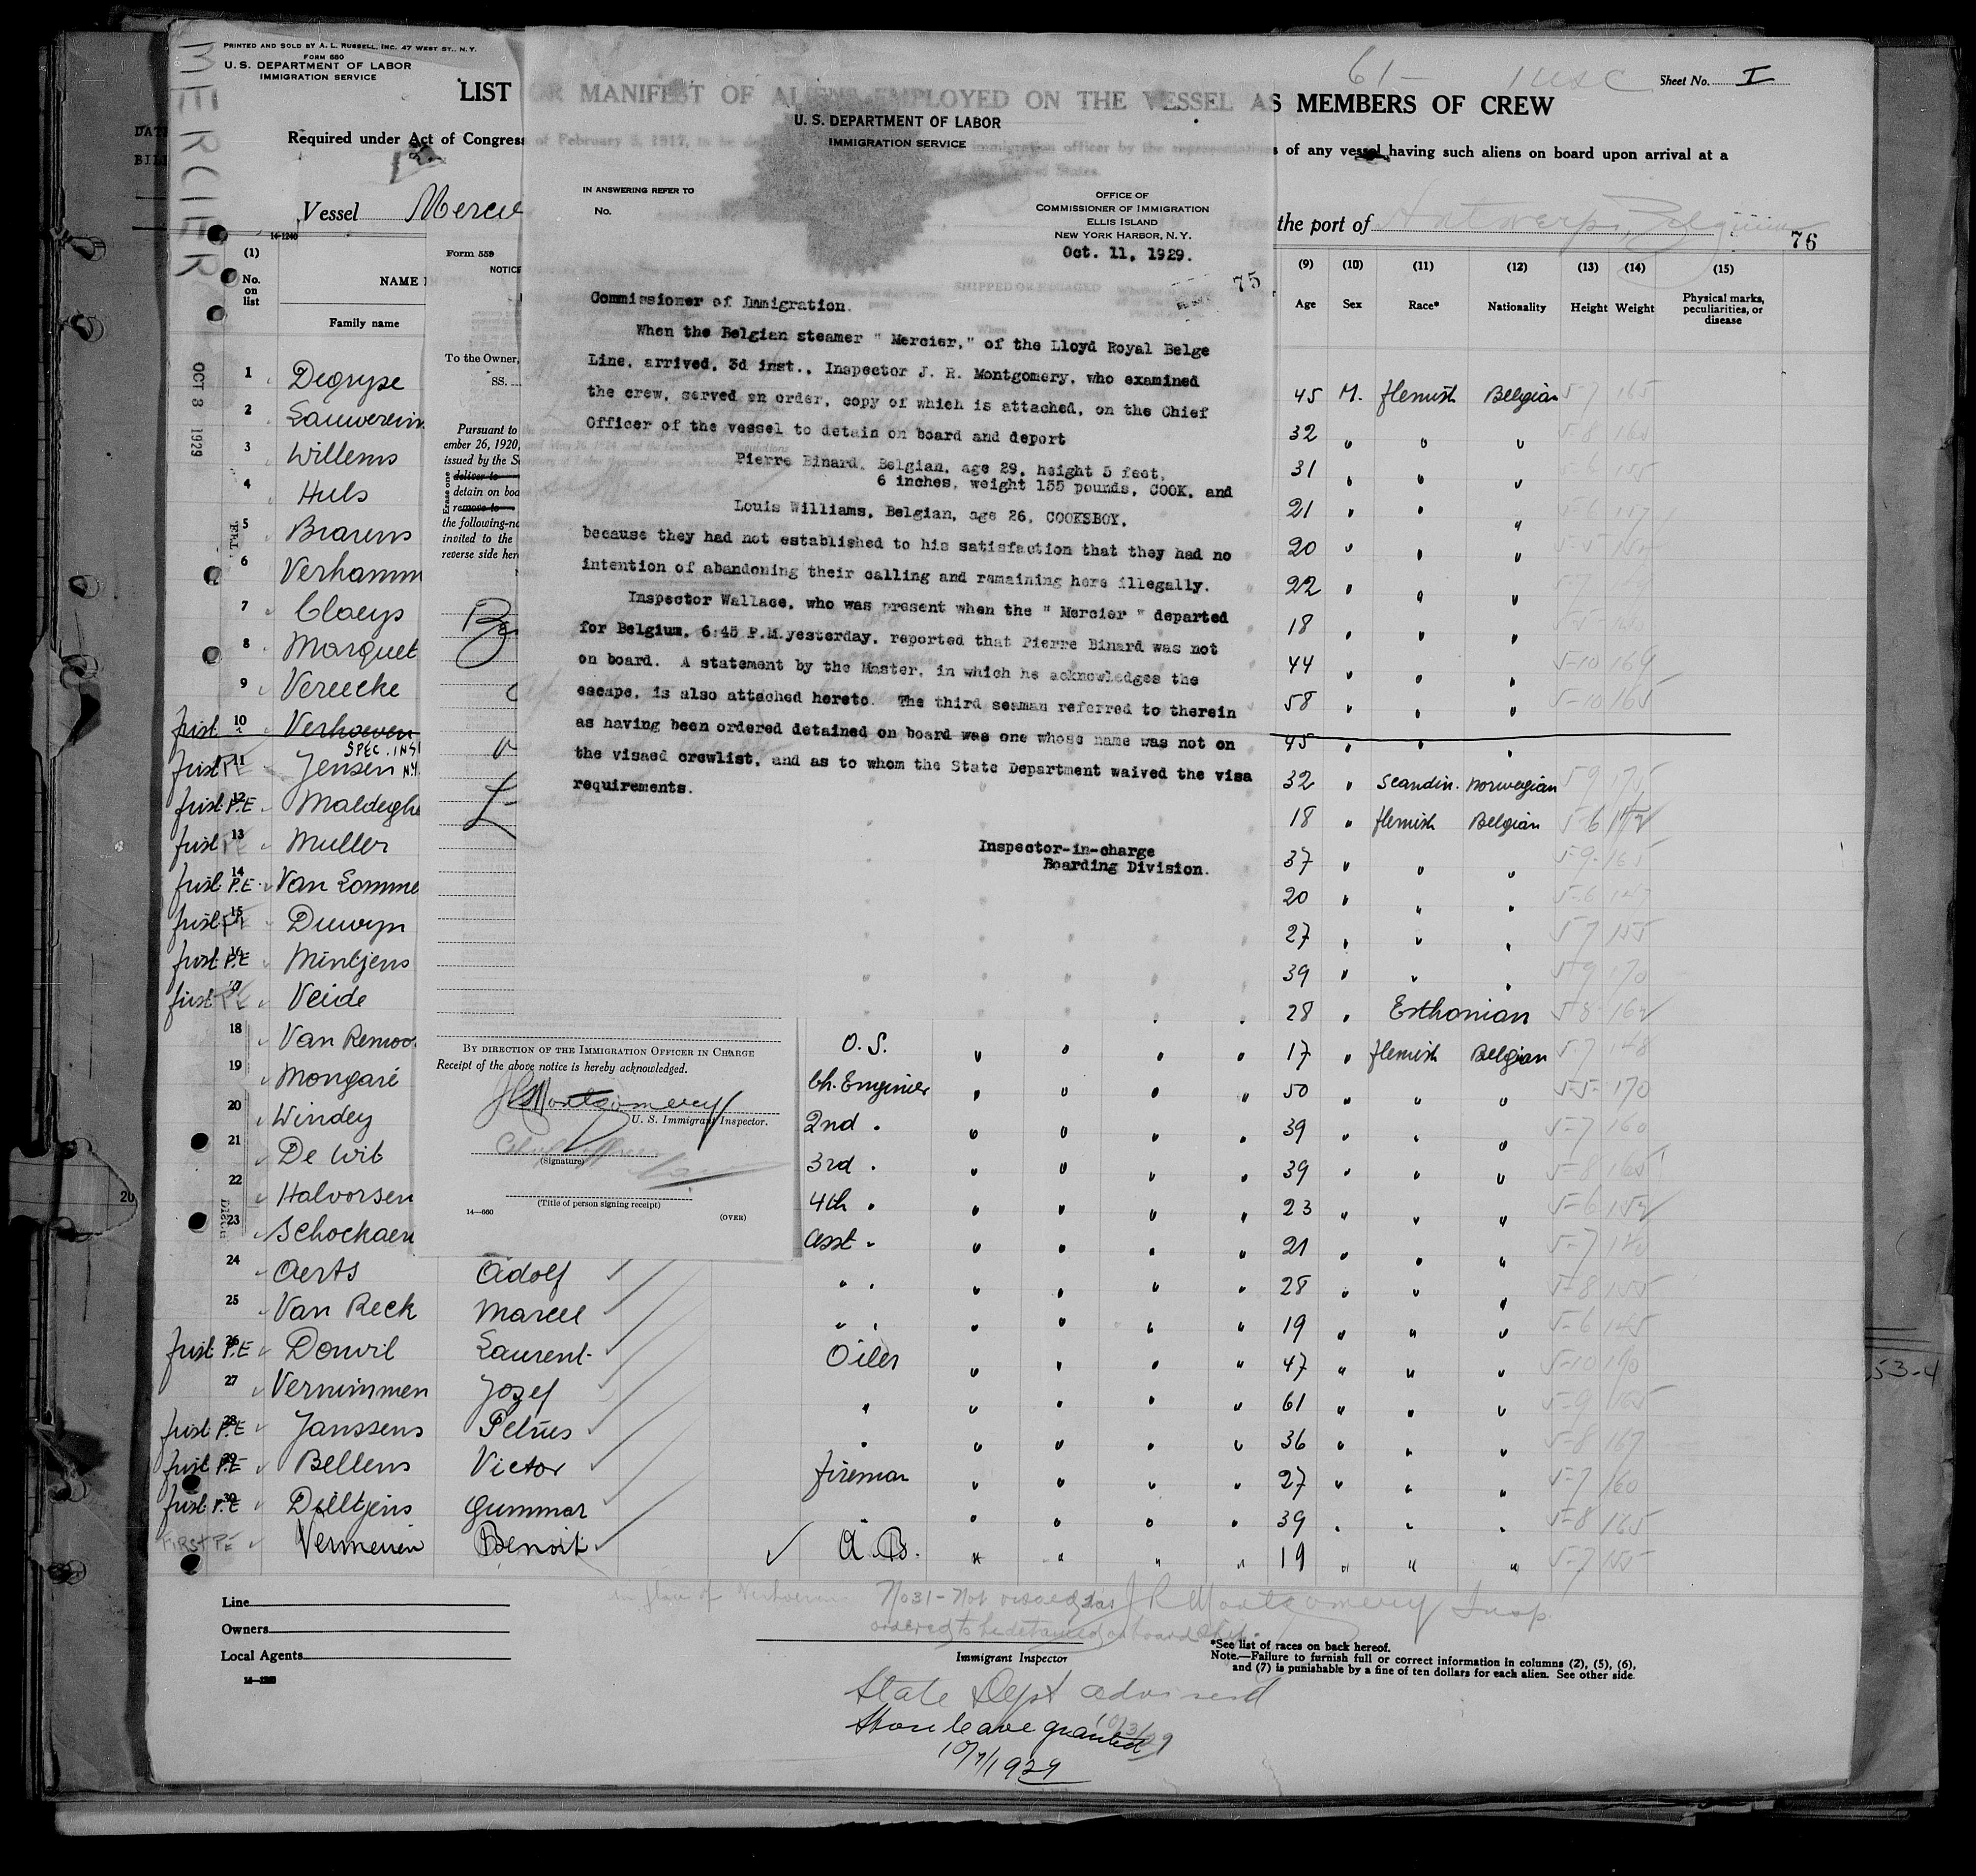 MERCIER
PRINTED AND SOLD BY A. L. RUSSELL, INC. 47 WEST ST., N.Y.
FORM 680
U. S. DEPARTMENT OF LABOR
IMMIGRATION SERVICE
61- 1 usc Sheet No. I
LIST OR MANIFEST OF ALIENS EMPLOYED ON THE VESSEL AS MEMBERS OF CREW
Required under Act of Congress of February 5, 1917, to be immigration officer by the representatives of any vessel having such aliens on board upon arrival at a
Vessel Mercie
the port of Antwerp, Belgium
76
14-1240
(1) No. on list
NAME
Family name
(9) Age
(10) Sex
(11) Race*
(12) Nationality
(13) Height
(14) Weight
(15) Physical marks, peculiarities, or disease
SHIPPED OR ENGAGED
U. S. DEPARTMENT OF LABOR
IMMIGRATION SERVICE
IN ANSWERING REFER TO
No.
OFFICE OF
COMMISSIONER OF IMMIGRATION
ELLIS ISLAND
NEW YORK HARBOR, N. Y.
Oct. 11, 1929.
75
Commissioner of Immigration.
When the Belgian steamer " Mercier," of the Lloyd Royal Belge
Line, arrived, 3d inst., Inspector J. R. Montgomery, who examined
the crew, served an order, copy of which is attached, on the Chief
Officer of the vessel to detain on board and deport
Pierre Binard, Belgian, age 29, height 5 feet,
6 inches, weight 155 pounds, COOK, and
Louis Williams, Belgian, age 26, COOKSBOY,
because they had not established to his satisfaction that they had no
intention of abandoning their calling and remaining here illegally.
Inspector Wallace, who was present when the " Mercier " departed
for Belgium, 6:45 P.M. yesterday, reported that Pierre Binard was not
on board. A statement by the Master, in which he acknowledges the
escape, is also attached hereto. The third seaman referred to therein
as having been ordered detained on board was one whose name was not on
the visaed crewlist, and as to whom the State Department waived the visa
requirements.
Inspector-in-charge
Boarding Division.
Form 559
NOTICE
To the Owner,
SS.
Pursuant to
ember 26, 1920,
issued by the
Erase one
deliver to
detain on boa
remove to
the following-n
invited to the
reverse side her
BY DIRECTION OF THE IMMIGRATION OFFICER IN CHARGE
Receipt of the above notice is hereby acknowledged.
J R Montgomery
U. S. Immigrant Inspector.
(Signature)
(Title of person signing receipt)
14-660
(OVER)
OCT 8 1929
1 Degryse 45 M. flemish Belgian 5-7 165
2 Lauwerein 32 " " " 5-8 160
3 Willems 31 " " "
4 Huls 21 " " "
5 Brarens 20 " " "
6 Verhamm 22 " " "
7 Claeys 18 " " "
8 Marquet 44 " " " 5-10 164
9 Vereecke 58 " " " 5-10 165
first 10 Verhoeven 45 " " "
SPEC. INS
first P.E 11 Jensen N.Y. 32 " Scandin. Norwegian 5-9 175
first P.E 12 Maldeghe 18 " flemish Belgian 5-6 142
first P.E 13 Muller 37 " " " 5-9 165
first P.E 14 Van Lomme 20 " " " 5-6 147
first P.E 15 Duwyn 27 " " " 5-7 155
first P.E 16 Mintjens 39 " " " 5-9 170
first P.E 17 Veide 28 " Esthonian 5-8 162
18 Van Remoo O. S. " " " " 17 " flemish Belgian 5-7 148
19 Mongaré Ch. Enginier " " " " 50 " " " 5-5 170
20 Windey 2nd " " " " " 39 " " " 5-7 160
21 De Wit 3rd " " " " " 39 " " " 5-8 165
22 Halvorsen 4th " " " " " 23 " " " 5-6 152
23 Schockaert asst " " " " " 21 " " " 5-7 140
24 Aerts Adolf " " " " " " 28 " " " 5-8 155
25 Van Reck Marcel " " " " " " 19 " " " 5-6 145
first P.E 26 Donvil Laurent Oiler " " " " 47 " " " 5-10 190
27 Vernimmen Jozef " " " " " 61 " " " 5-9 165
first P.E 28 Janssens Petrus " " " " " 36 " " " 5-8 167
first P.E 29 Bellens Victor fireman " " " " 27 " " " 5-7 160
first P.E 30 Dilltjens Gummar " " " " " 39 " " " 5-8 165
FIRST P.E Vermeiren Benoit A. B. " " " " 19 " " " 5-7 155
in place of Verhoeven No 31 - Not visaed J R Montgomery Insp.
ordered to be detained on board ship.
Line
Owners
Local Agents
Immigrant Inspector
*See list of races on back hereof.
Note.—Failure to furnish full or correct information in columns (2), (5), (6),
and (7) is punishable by a fine of ten dollars for each alien. See other side.
State Dept advised
10/3/29
Shore leave granted
10/7/1929
20
53-4